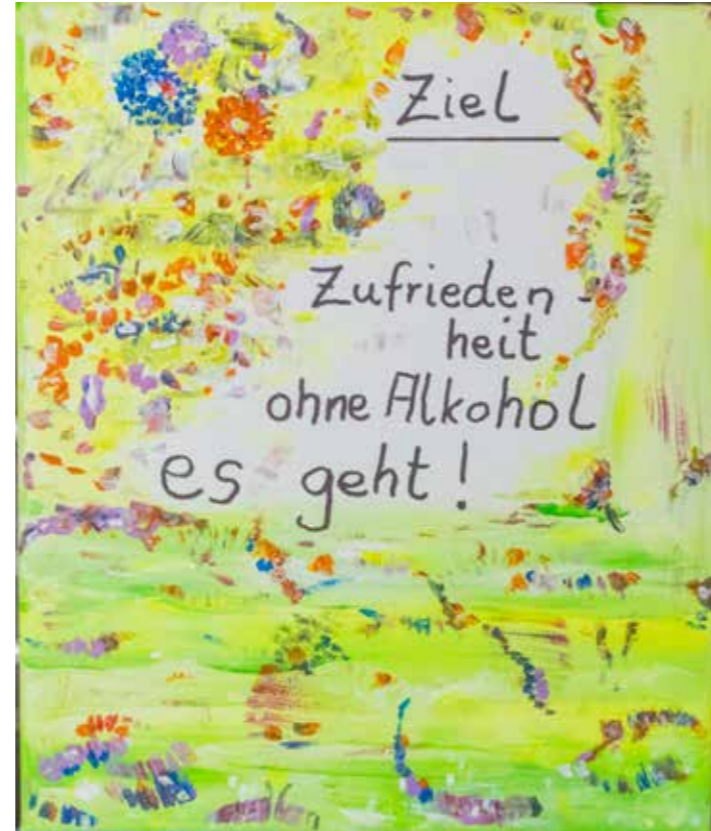 Ziel
Zufrieden-
heit
ohne Alkohol
es geht!